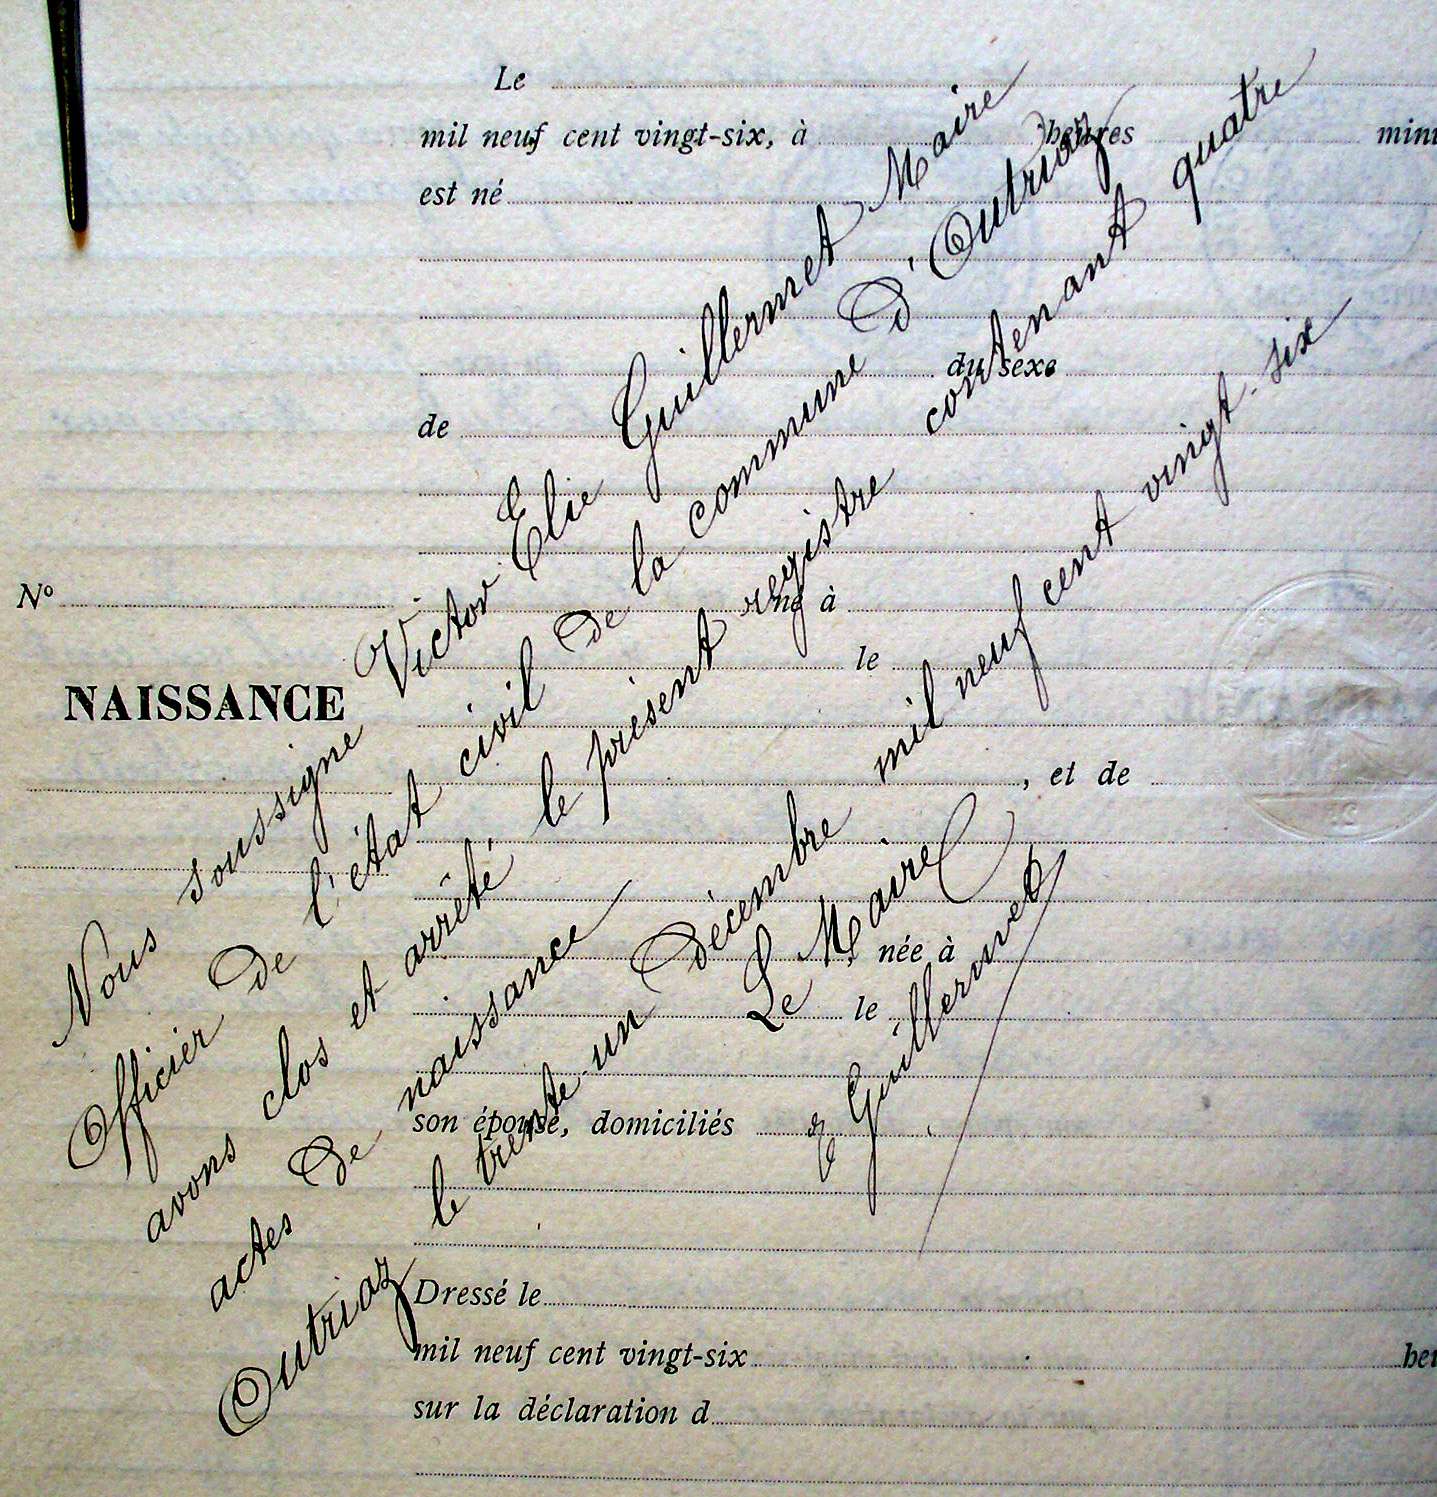 Le
mil neuf cent vingt-six, à heures
est né
du sexe
de
né à
N°
le
NAISSANCE
, et de
, née à
le
son épouse, domiciliés
Dressé le
mil neuf cent vingt-six
sur la déclaration d
Nous soussigné Victor Elie Guillermet Maire
Officier de l'état civil de la commune d'Outriaz
avons clos et arrêté le présent registre contenant quatre
actes de naissance
Outriaz le trente-un décembre mil neuf cent vingt-six
Le Maire
Guillermet